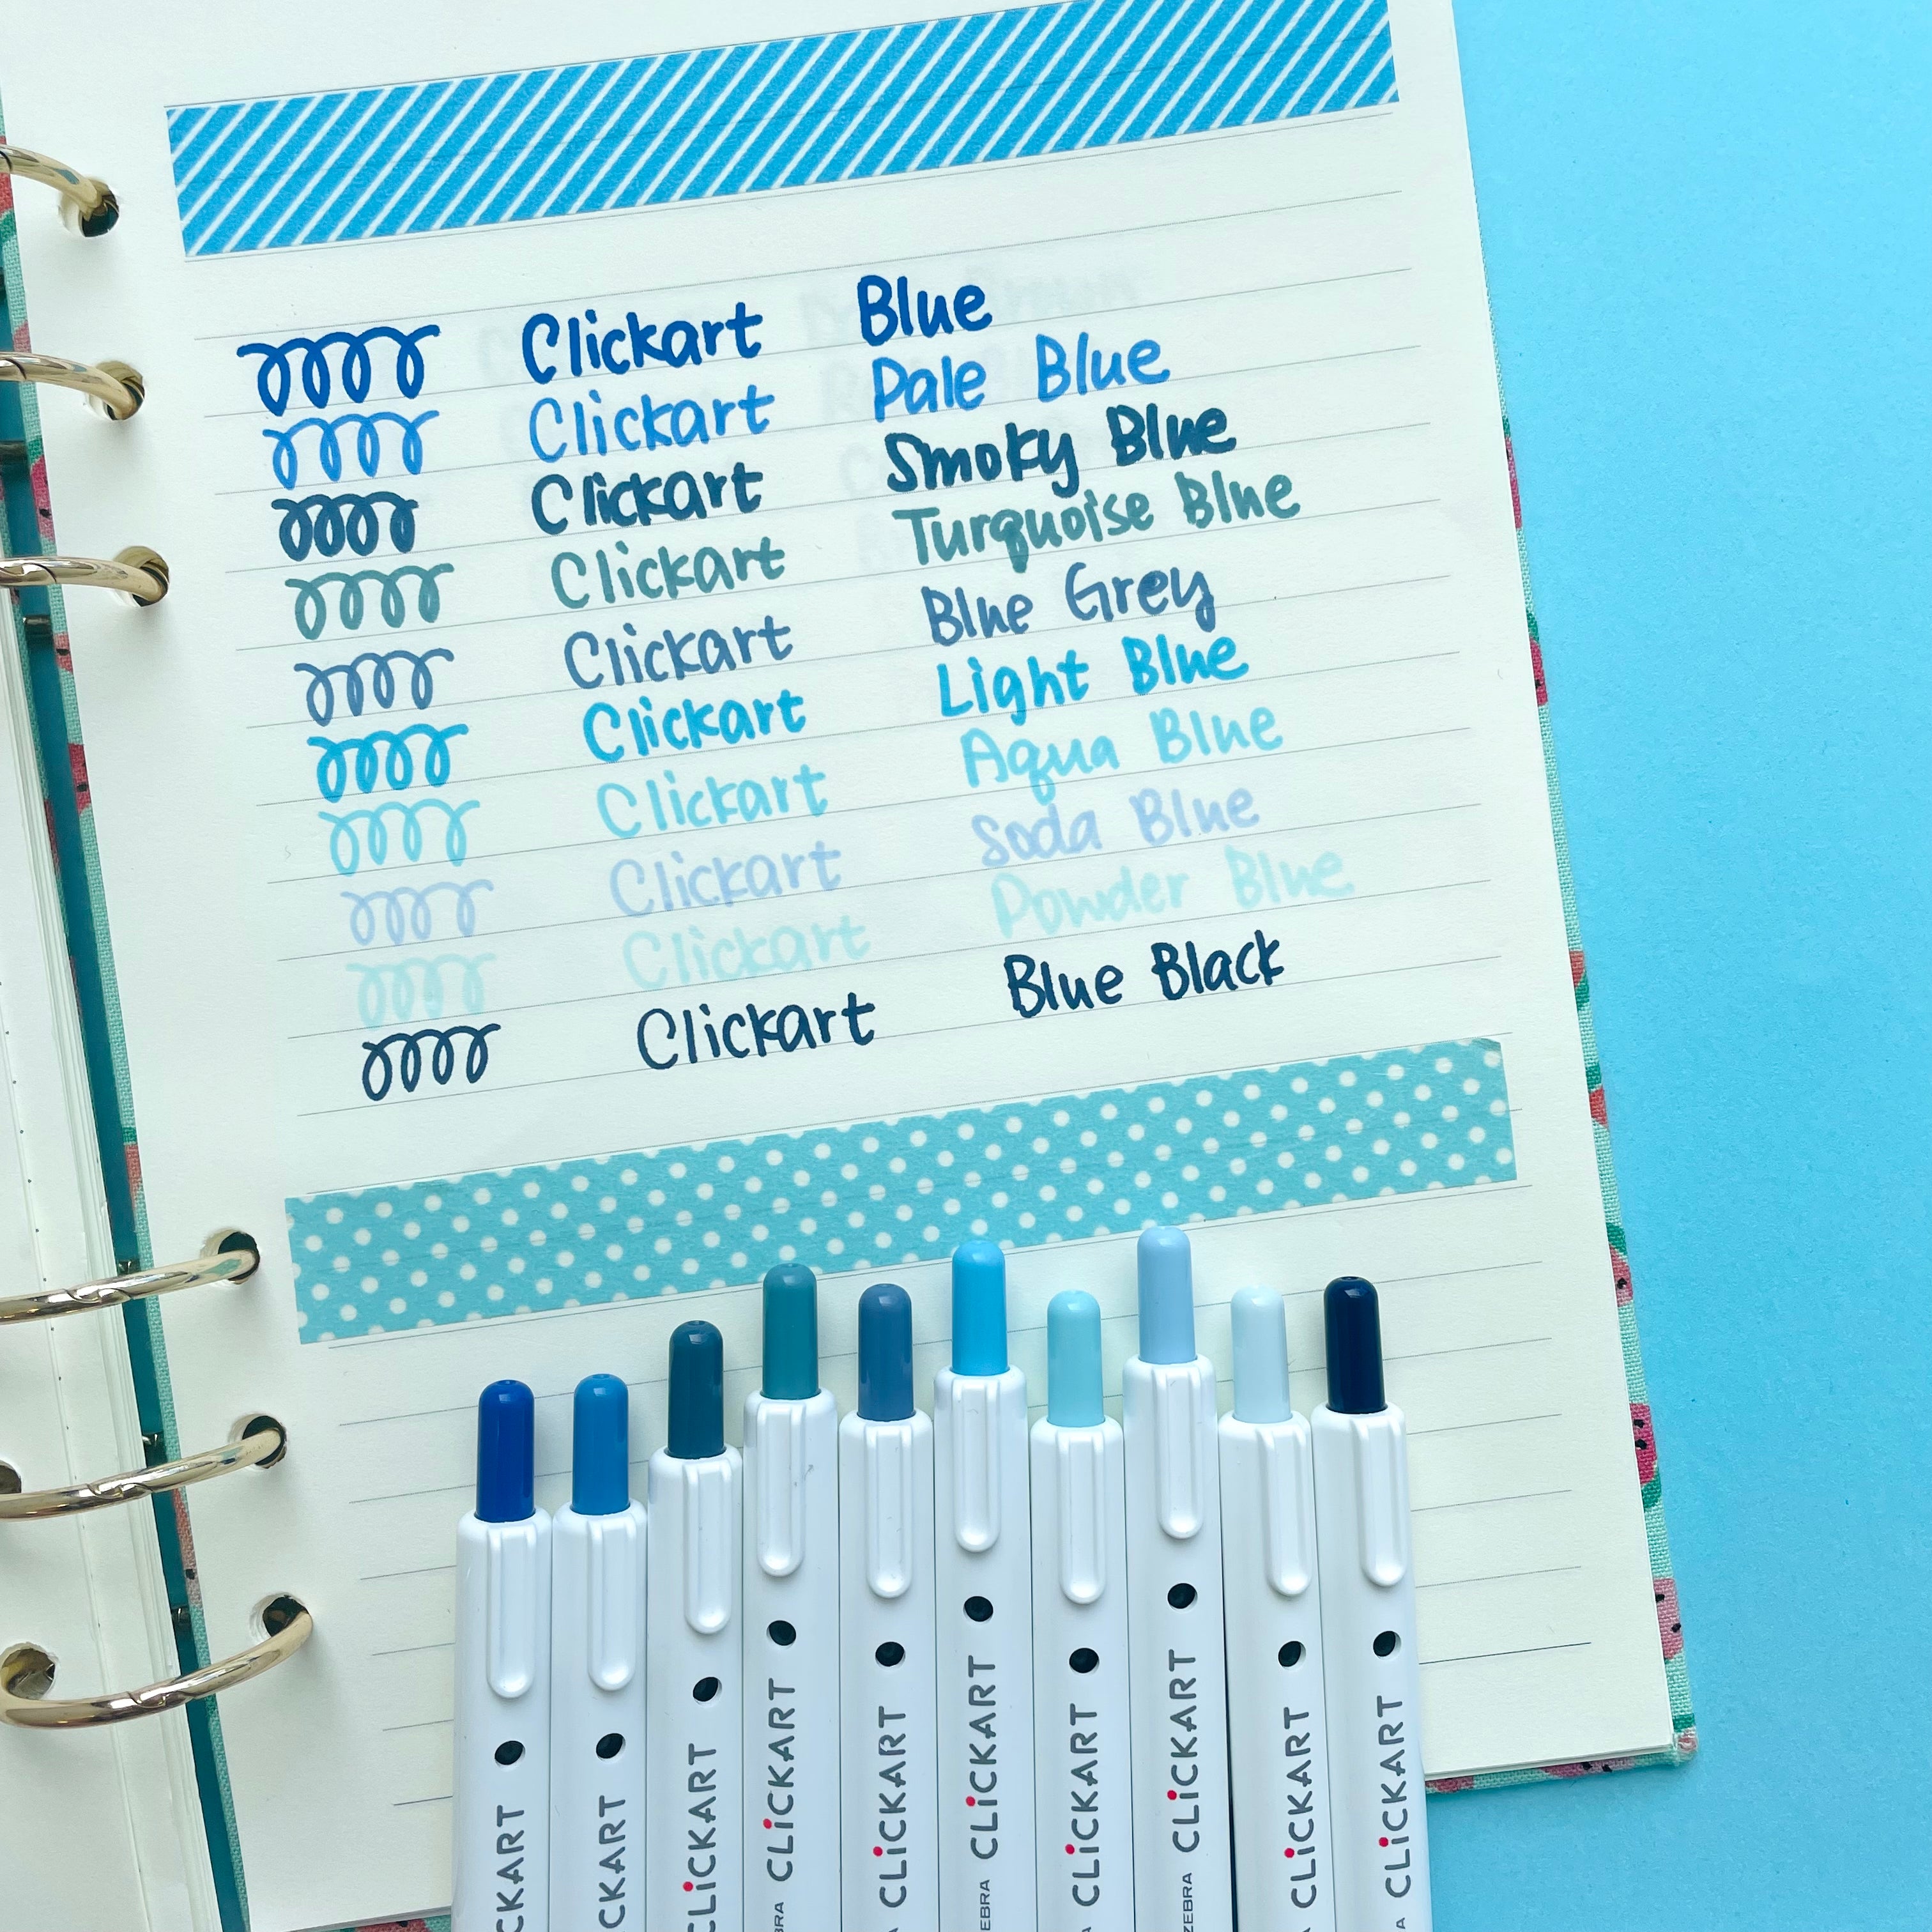 Clickart Blue
Clickart Pale Blue
Clickart Smoky Blue
Clickart Turquoise Blue
Clickart Blue Grey
Clickart Light Blue
Clickart Aqua Blue
Clickart Soda Blue
Clickart Powder Blue
Clickart Blue Black
CKART
CKART
CLiCKART
BRA CLiCKART
CLiCKART
EBRA CLiCKART
CLiCKART
ZEBRA CLiCKART
A CLiCKART
A CLiCKART